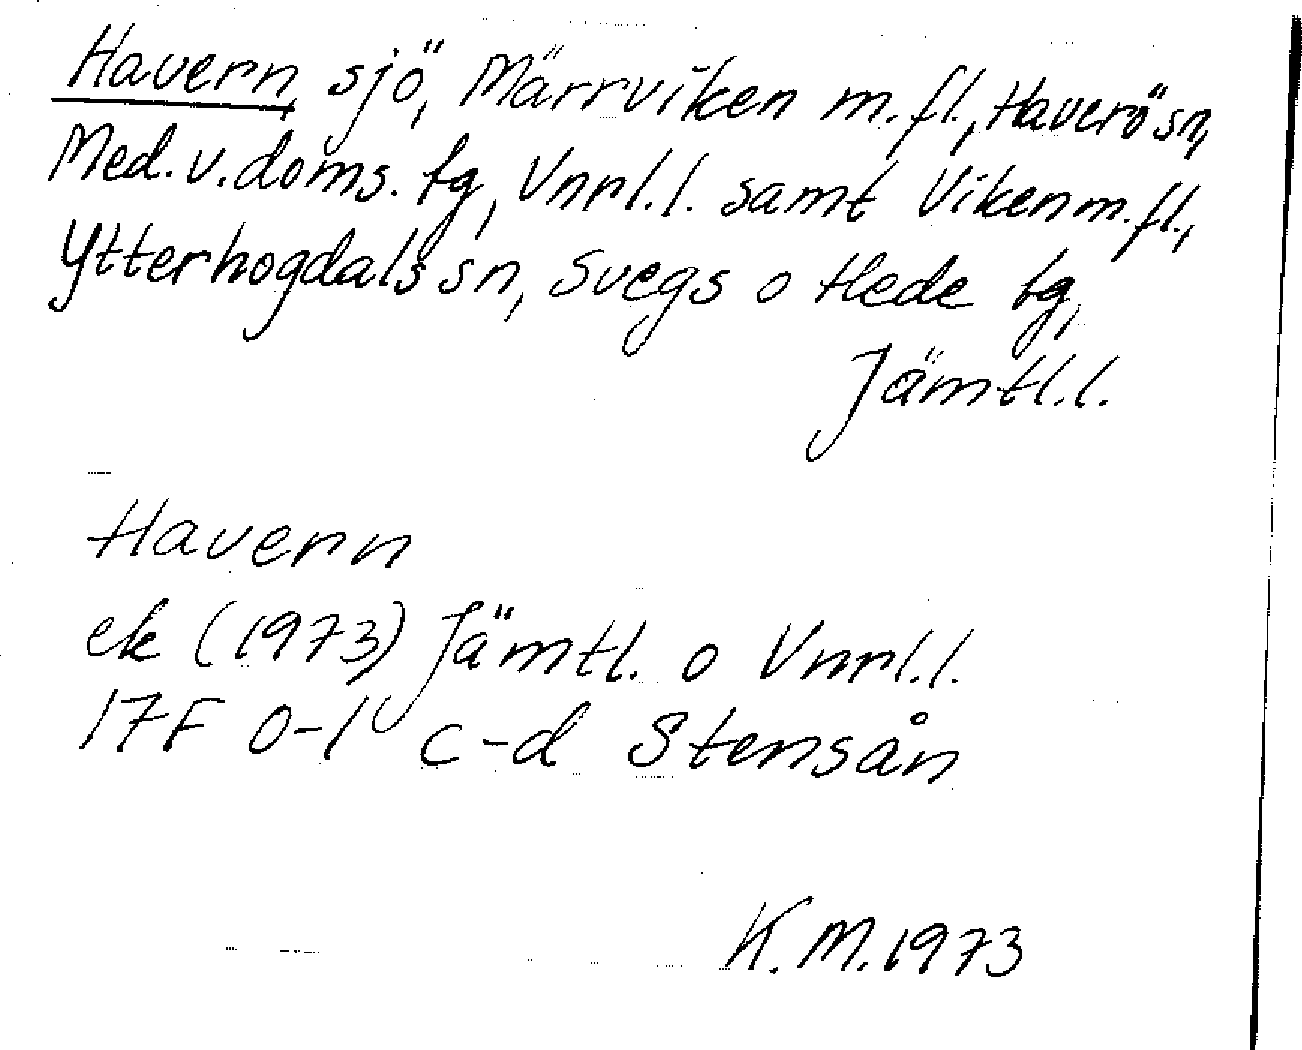 Havern, sjö, Märrviken m.fl., Haverö sn,
Med.v.doms. tg, Vnrl.l. samt Viken m.fl.,
Ytterhogdals sn, Svegs o Hede tg,
Jämtl.l.
Havern
ek (1973) Jämtl. o Vnrl.l.
17F 0-1 c-d Stensån
K.M.1973